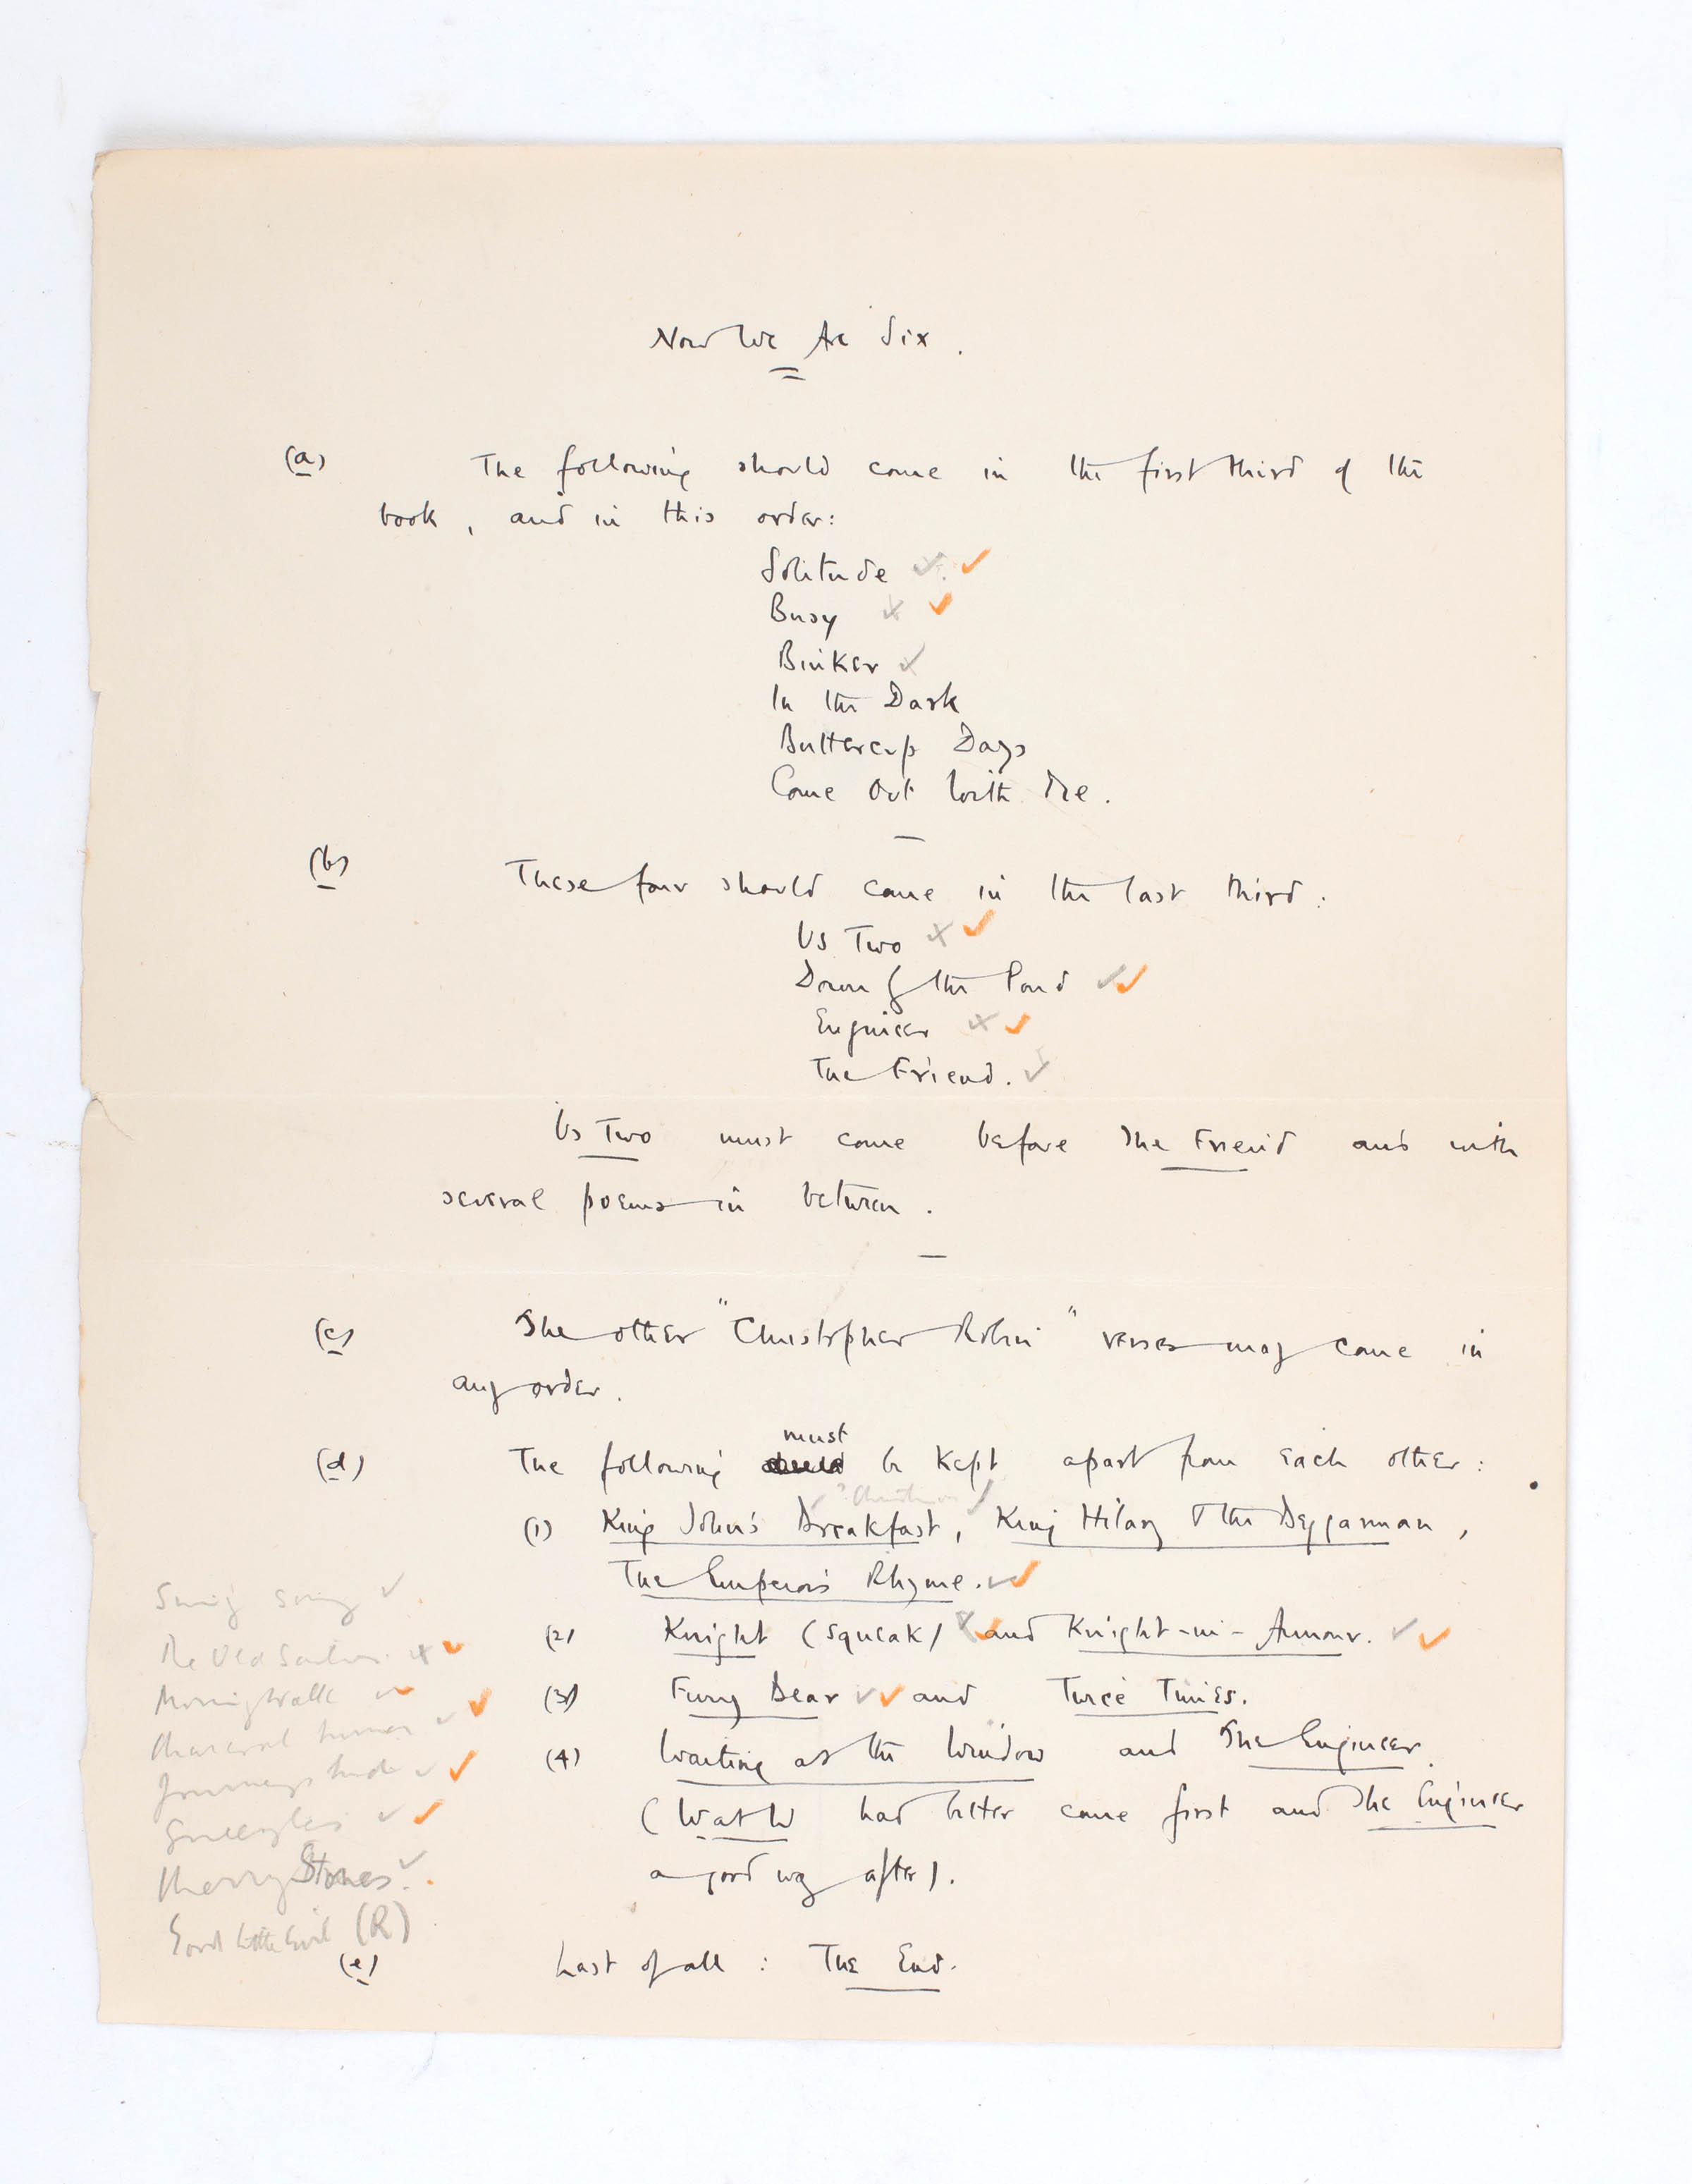 Now We Are Six.
(a) The following should come in the first third of the
book, and in this order:
Solitude
Busy
Binker
In the Dark
Buttercup Days
Come Out with Me.
(b) These four should come in the last third:
Us Two
Down by the Pond
Engineer
The Friend.
Us Two must come before The Friend and with
several poems in between.
(c) The other "Christopher Robin" verses may come in
any order.
must
(d) The following be kept apart from each other:
(1) King John's Breakfast, King Hilary & the Beggarman,
The Emperor's Rhyme.
(2) Knight (squeak) and Knight-in-Armour.
(3) Furry Bear and Twice Times.
(4) Waiting at the Window and The Engineer.
(W at W had better come first and The Engineer
a good way after).
Swing Song
The Old Sailor
Morning Walk
Charcoal burner
Journeys End
Cherry Stones
Good Little Girl (R)
(e) Last of all: The End.